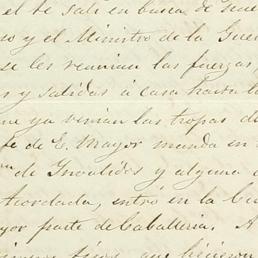 el te sali en busca de
so y el Ministro de la Gue
se les reunian las fuerzas
s y salidas á casa hasta
ue ya venian las tropas d
fe de E. Mayor manda en
de Invalidos y alguna
Acordada, entró en la
yor parte de Caballeria. A
que hicieron